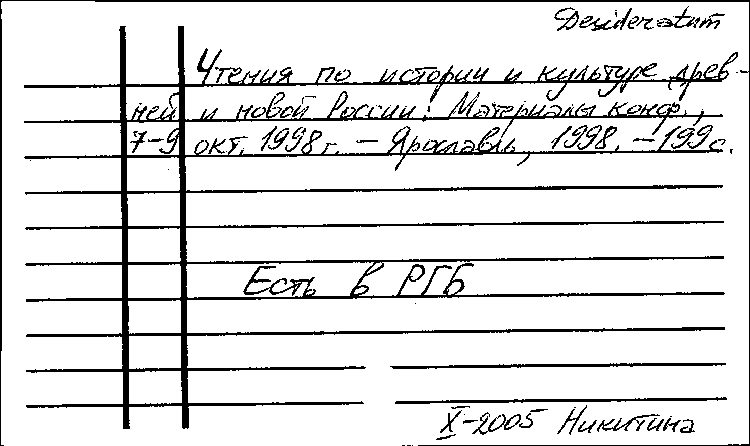 Desideratum
Чтения по истории и культуре древ-
ней и новой России: Материалы конф.,
7-9 окт. 1998 г. – Ярославль, 1998. – 199 с.
Есть в РГБ
X-2005 Никитина